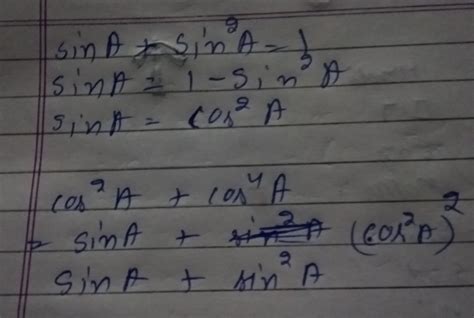 sinA + sin²A = 1
sinA = 1 - Sin²A
sinA = Cos²A
cos²A + cos⁴A
= sinA + (cos²A)²
SinA + sin²A